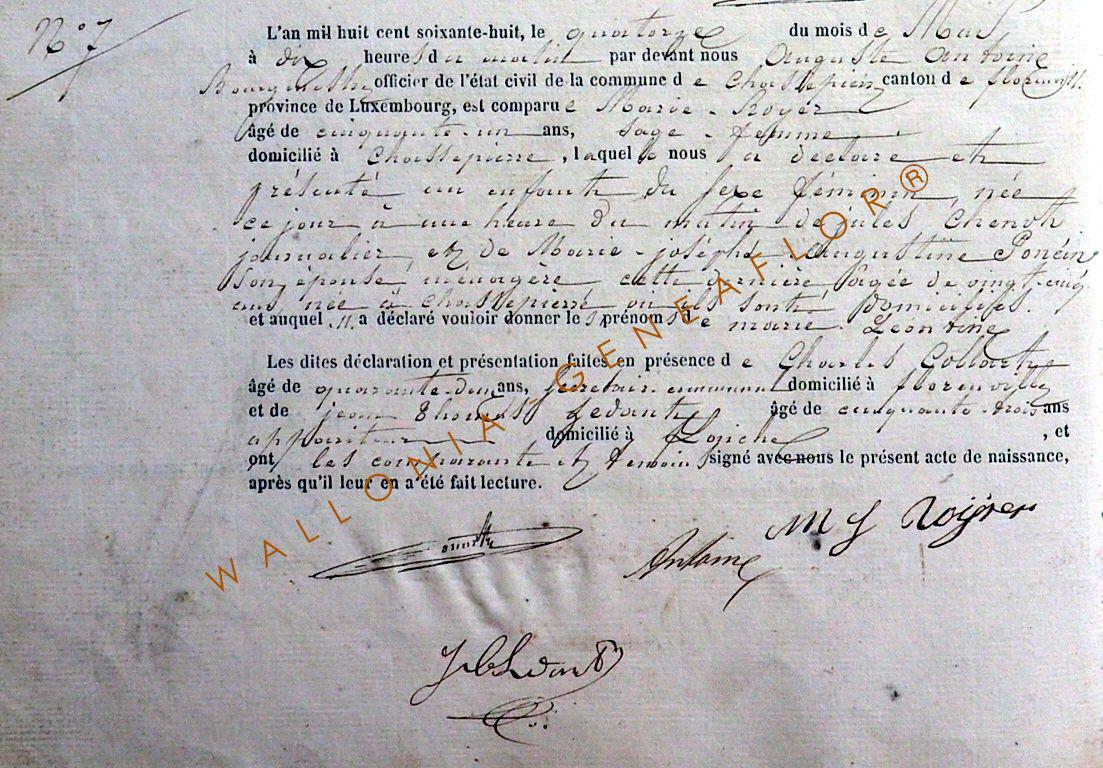 N° 7
L'an mil huit cent soixante-huit, le quatorze du mois de Mars
à dix heures du matin par devant nous Auguste Antoine
Bourguestre officier de l'état civil de la commune de Chassepierre canton de florenville
province de Luxembourg, est comparue Marie - Royer
âgé de cinquante-un ans, sage-femme
domicilié à Chassepierre, laquelle nous a déclaré et
présenté un enfant du sexe féminin, née
ce jour à une heure du matin de jules Chenot
journalier, et de Marie-josèphe Augustine Poncin
son épouse, ménagère, cette dernière âgée de vingt-cinq
ans née à Chassepierre où ils sont domiciliés.
et auquel il a déclaré vouloir donner les prénoms de marie Léontine
Les dites déclaration et présentation faites en présence de Charles Collart
âgé de quarante-deux ans, secrétaire communal domicilié à florenville
et de jean Thomas Ledant âgé de cinquante-trois ans
appariteur domicilié à
, et
ont les comparante et témoins signé avec nous le présent acte de naissance,
après qu'il leur en a été fait lecture.
M J Roÿer
Antoine
WALLONIA-GENEAFLOR®